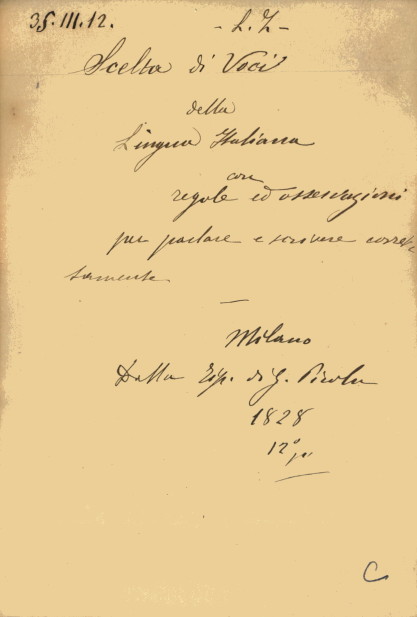 35.III.12.
- L. Z -
Scelta di Voci
della
Lingua Italiana
con
regole ed osservazioni
per parlare e scrivere corret=
tamente
Milano
Dalla Tip. di G. Pirola
1828
12°
C